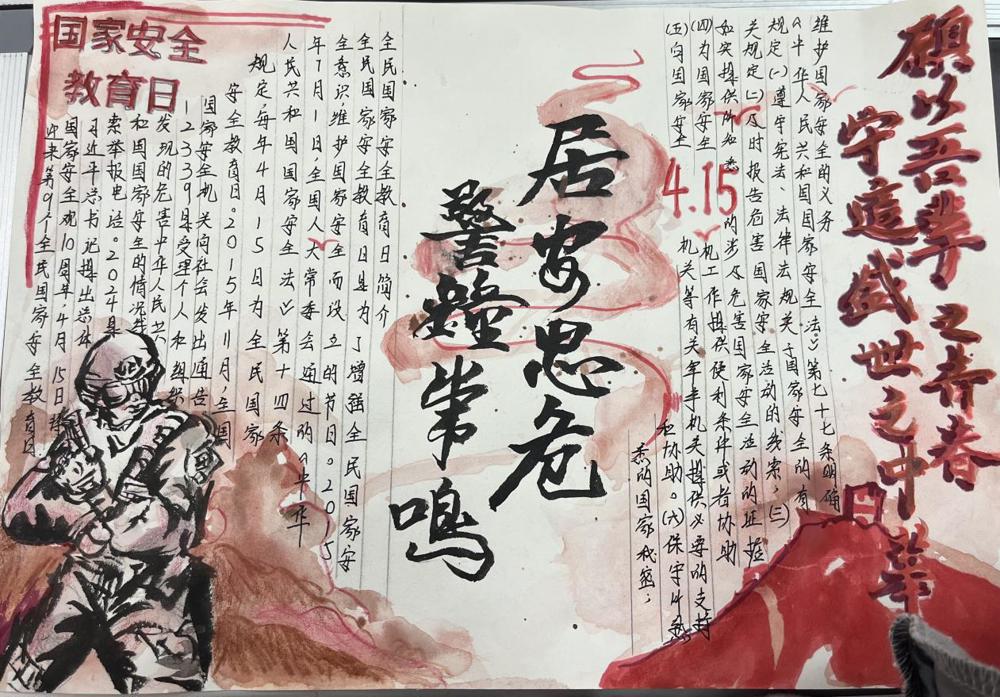 願以吾辈之青春
守這盛世之中華
维护国家安全的义务
《中华人民共和国国家安全法》第七十七条明确
规定(一)遵守宪法、法律法规关于国家安全的有
关规定(二)及时报告危害国家安全活动的线索;(三)
如实提供所知悉的涉及危害国家安全活动的证据
(四)为国家安全机工作提供便利条件或者协助
(五)向国家安全机关等有关军事机关提供必要的支持
和协助。(六)保守所悉
悉的国家秘密;
4.15
居安思危
警鐘常鳴
国家安全
教育日
全民国家安全教育日简介
全民国家安全教育日是为了增强全民国家安
全意识,维护国家安全而设立的节日。2015
年7月1日,全国人大常委会通过的《中华
人民共和国国家安全法》第十四条
规定,每年4月15日为全民国家
安全教育日。2015年11月,全国
国家安全机关向社会发出通告
12339是受理个人和组织
发现的危害中华人民共
和国国家安全的情况线
索举报电话。2024是
习近平总书记提出总体
国家安全观10周年,4月15日
迎来第9个全民国家安全教育日